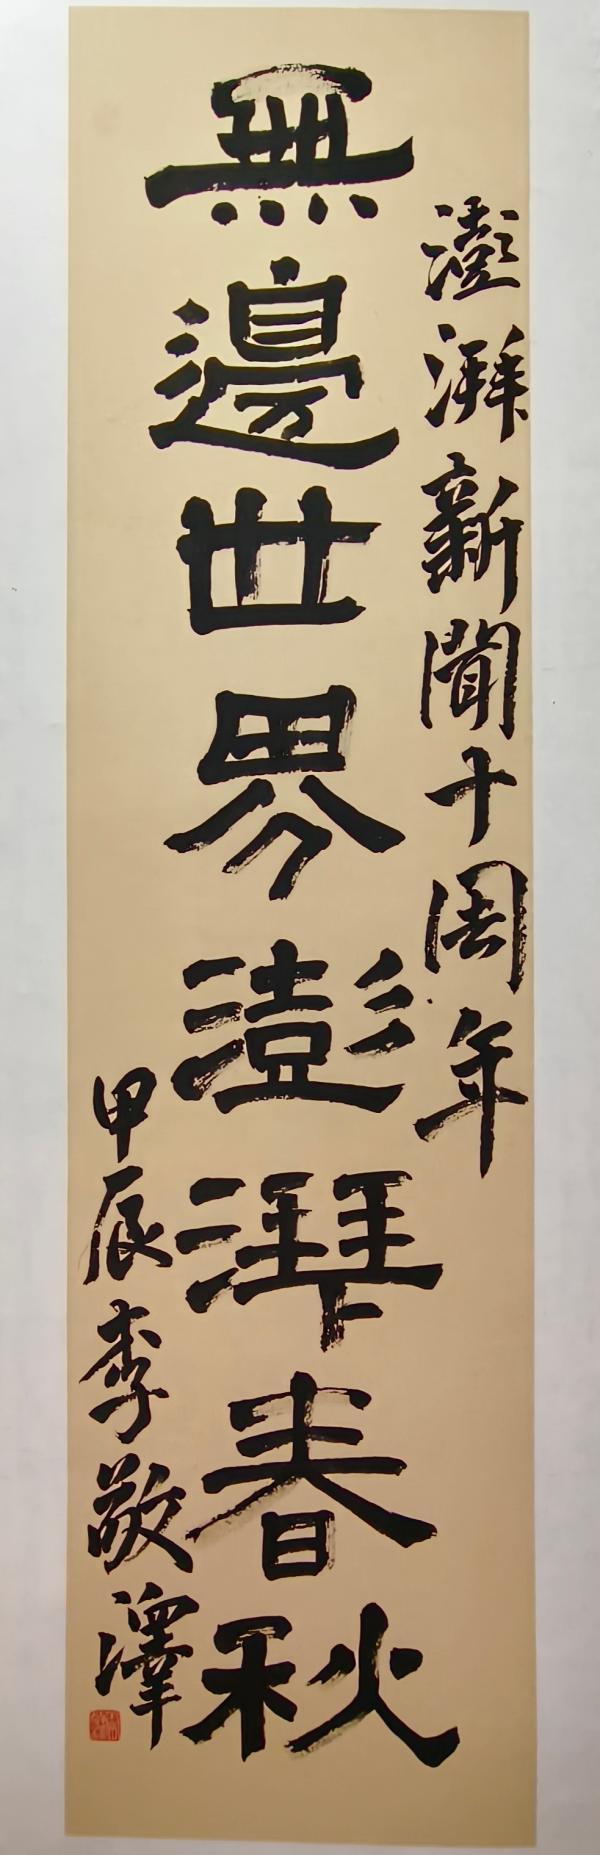 澎湃新聞十周年
無邊世界澎湃春秋
甲辰李敬澤